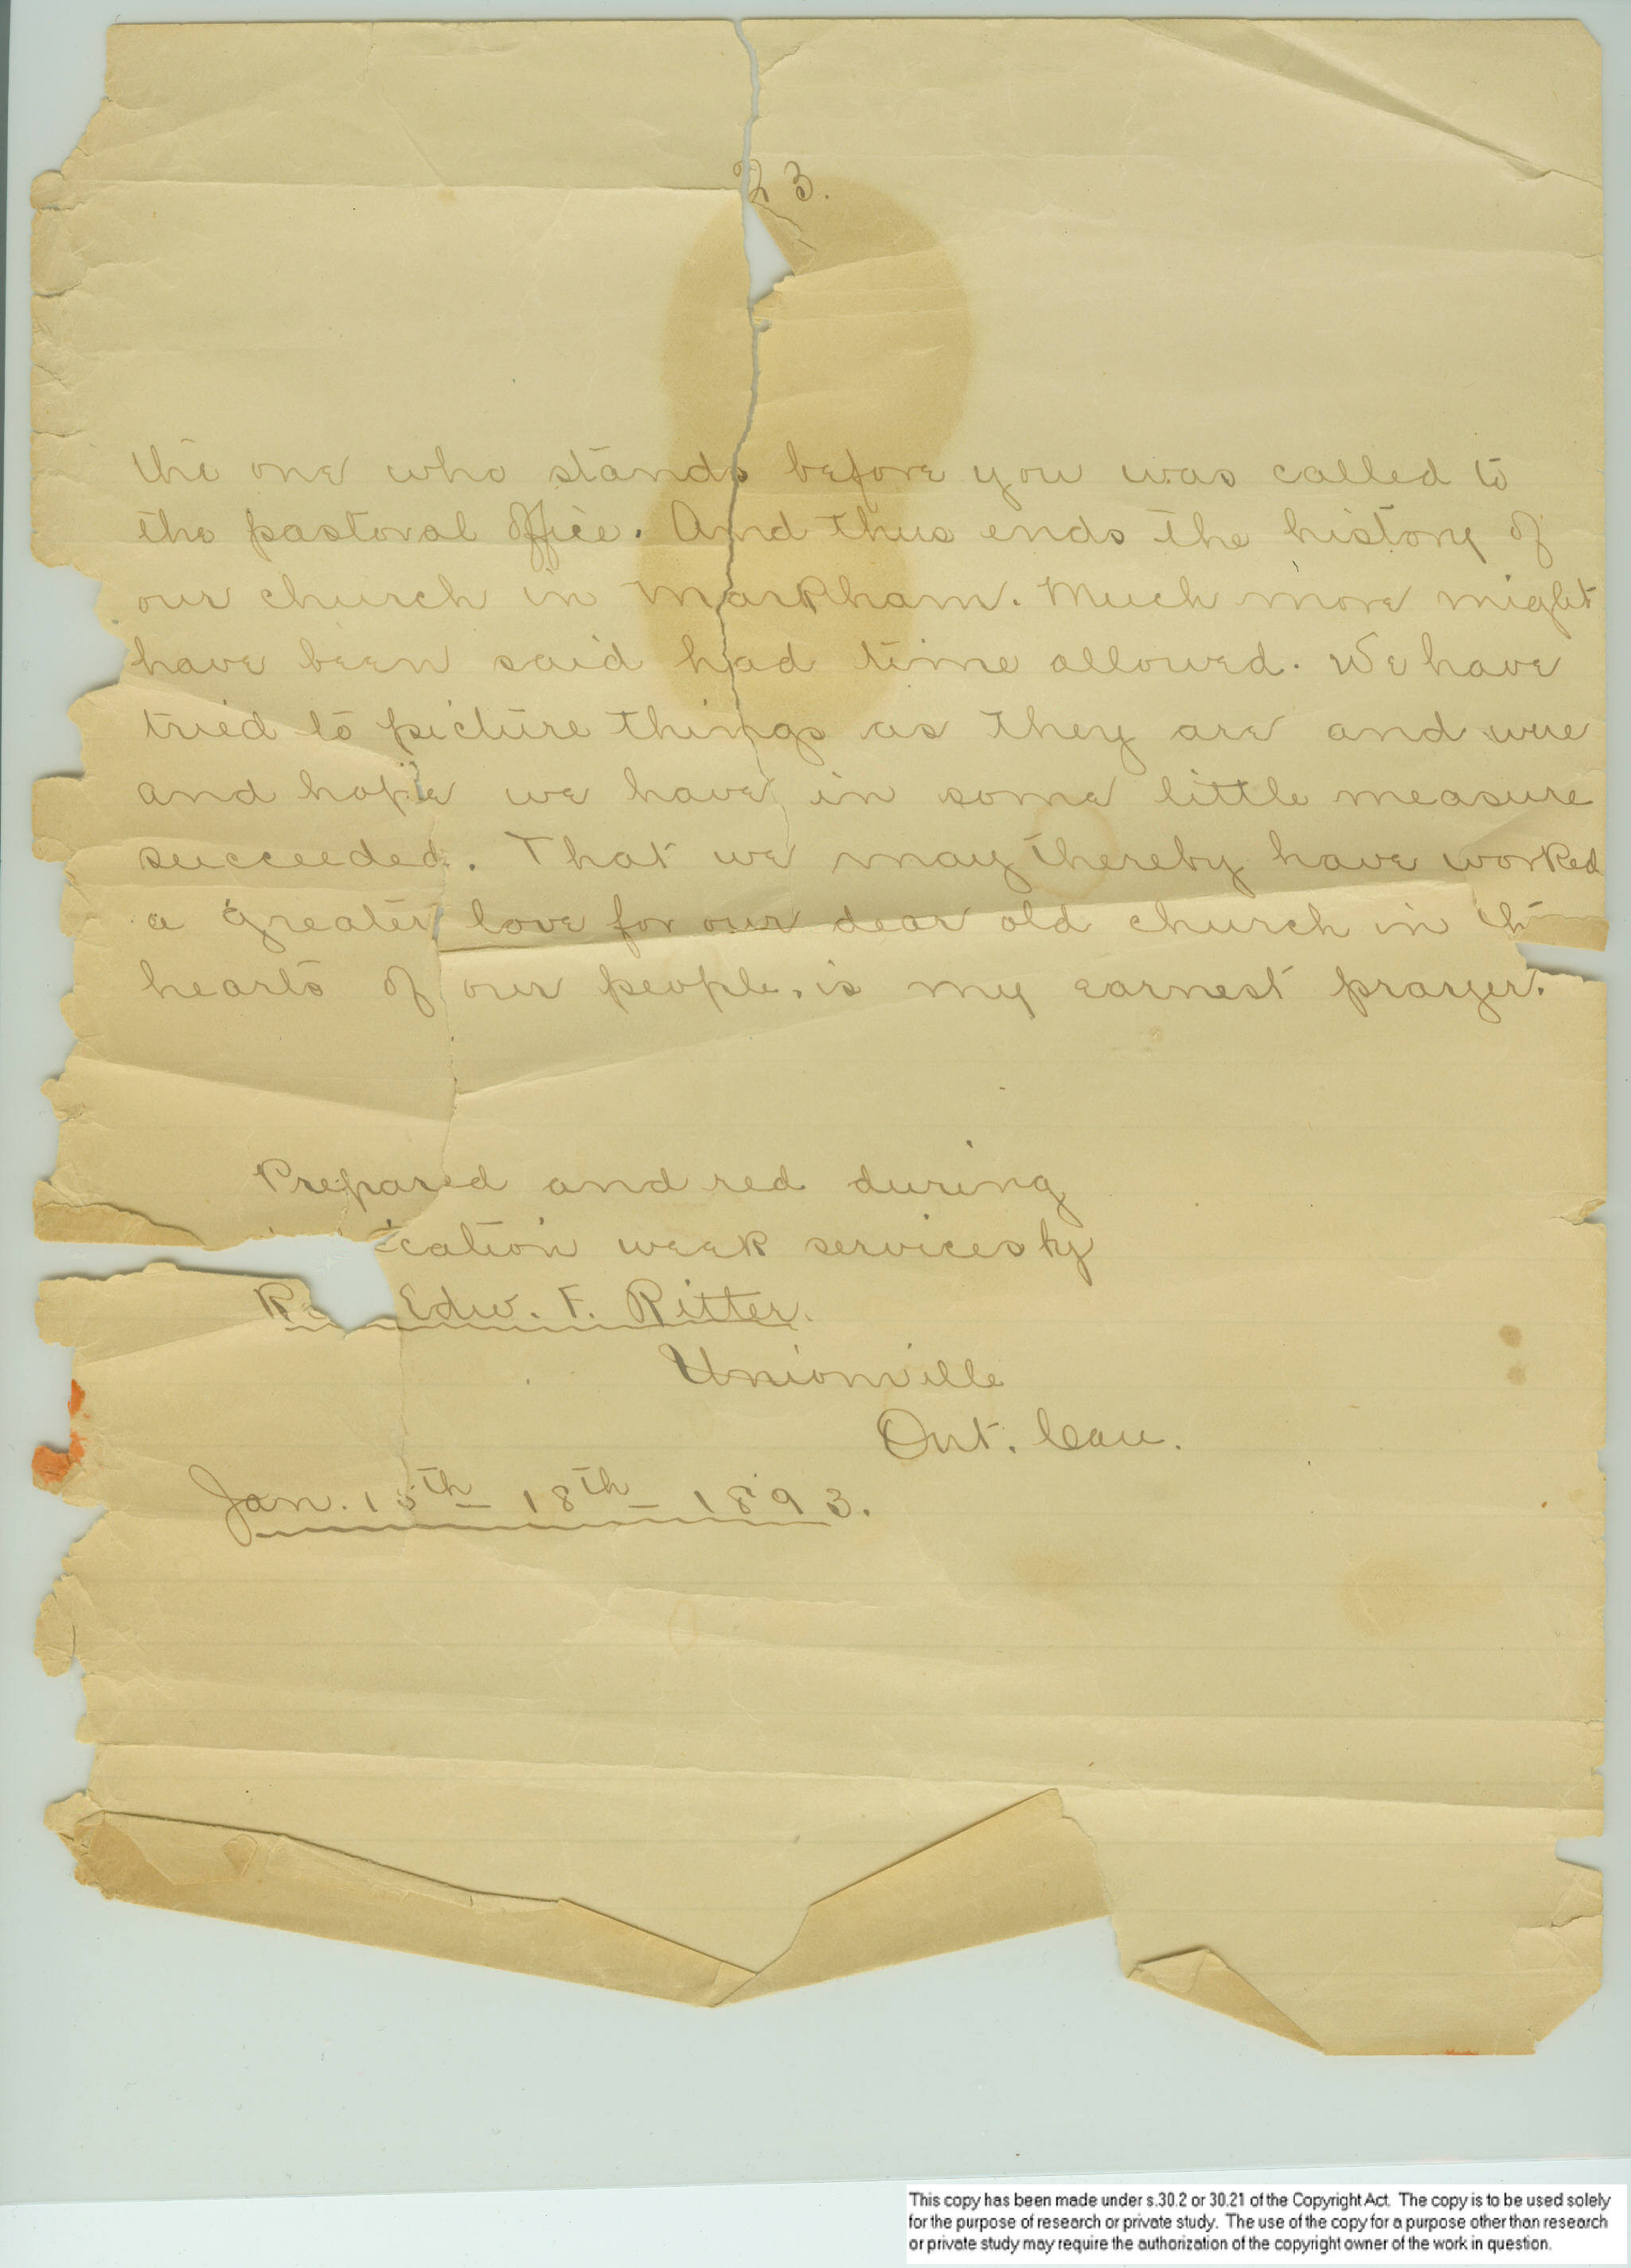 23.
the one who stands before you was called to
the pastoral office. And thus ends the history of
our church in Markham. Much more might
have been said had time allowed. We have
tried to picture things as they are and were
and hope we have in some little measure
succeeded. That we may thereby have worked
a greater love for our dear old church in th
hearts of our people, is my earnest prayer.
Prepared and red during
ication week services by
Re Edw. F. Ritter.
Unionville
Ont. Can.
Jan. 15th - 18th - 1893.
This copy has been made under s.30.2 or 30.21 of the Copyright Act. The copy is to be used solely
for the purpose of research or private study. The use of the copy for a purpose other than research
or private study may require the authorization of the copyright owner of the work in question.